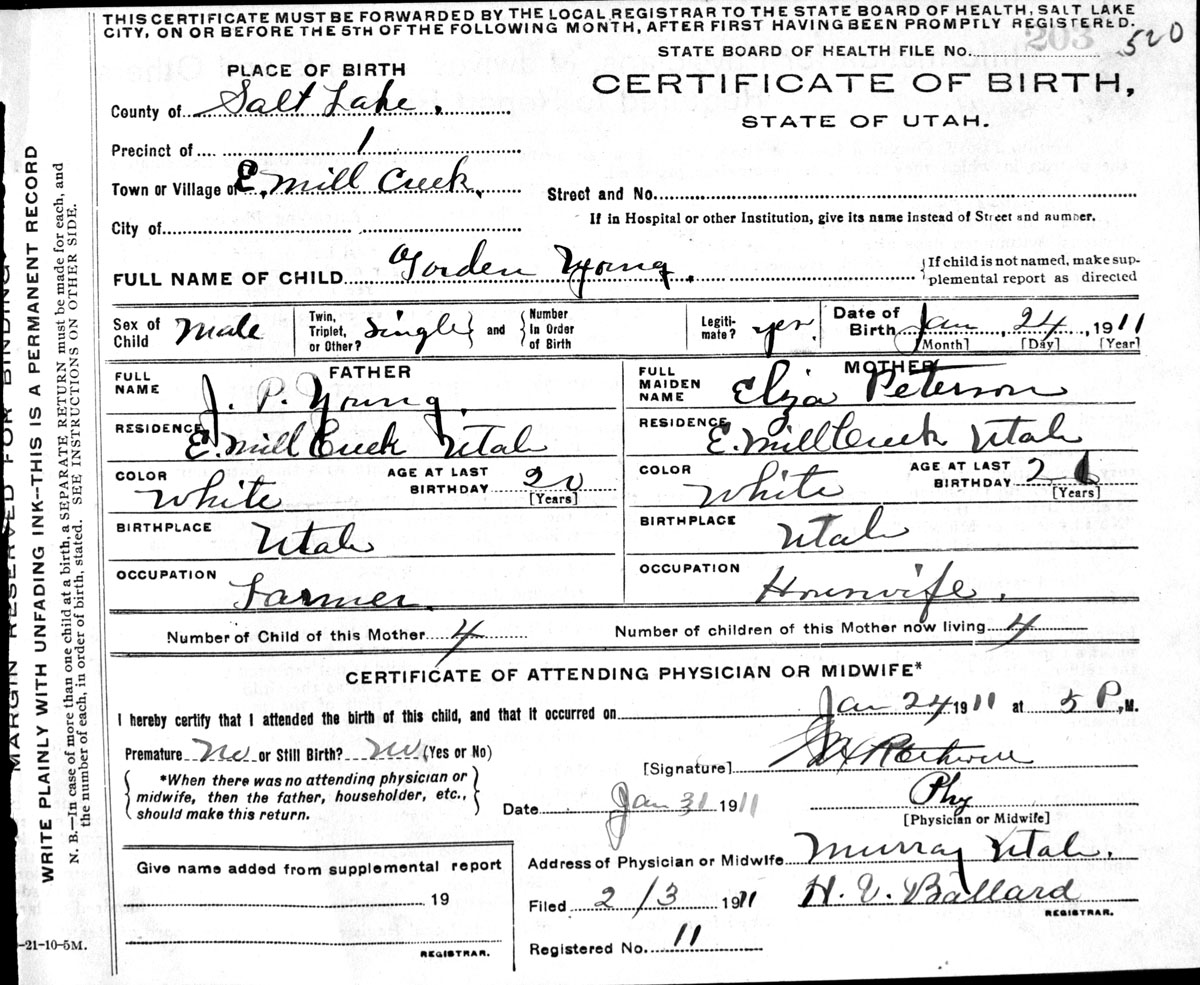 THIS CERTIFICATE MUST BE FORWARDED BY THE LOCAL REGISTRAR TO THE STATE BOARD OF HEALTH, SALT LAKE
CITY, ON OR BEFORE THE 5TH OF THE FOLLOWING MONTH, AFTER FIRST HAVING BEEN PROMPTLY REGISTERED.
203 520
STATE BOARD OF HEALTH FILE No.
PLACE OF BIRTH
CERTIFICATE OF BIRTH,
STATE OF UTAH.
County of Salt Lake.
Precinct of 1
Town or Village of E. Mill Creek,
Street and No.
If in Hospital or other Institution, give its name instead of Street and number.
City of
FULL NAME OF CHILD Gorden Young.
{If child is not named, make sup-
plemental report as directed
Sex of Child Male
Twin, Triplet, or Other? Single } and { Number In Order of Birth
Legiti-mate? yes.
Date of Birth Jan, 24, 1911
[Month] [Day] [Year]
FATHER
MOTHER
FULL NAME J. P. Young.
FULL MAIDEN NAME Eliza Peterson
RESIDENCE E. Mill Creek Utah
RESIDENCE E. Mill Creek Utah
COLOR White
AGE AT LAST BIRTHDAY [Years]
COLOR White
AGE AT LAST BIRTHDAY [Years]
BIRTHPLACE Utah
BIRTHPLACE Utah
OCCUPATION Farmer.
OCCUPATION Houswife.
Number of Child of this Mother 4
Number of children of this Mother now living 4
CERTIFICATE OF ATTENDING PHYSICIAN OR MIDWIFE*
I hereby certify that I attended the birth of this child, and that it occurred on Jan 24 1911 at 5 P.M.
Premature No or Still Birth? No (Yes or No)
[Signature] Rothwell
{ *When there was no attending physician or
midwife, then the father, householder, etc.,
should make this return. }
Date Jan 31 1911
Phy
[Physician or Midwife]
Give name added from supplemental report
19
REGISTRAR.
Address of Physician or Midwife Murray Utah.
Filed 2/3 1911 H. V. Ballard
REGISTRAR.
Registered No. 11
-21-10-5M.
MARGIN RESERVED FOR BINDING.
WRITE PLAINLY WITH UNFADING INK--THIS IS A PERMANENT RECORD
N. B.—In case of more than one child at a birth, a SEPARATE RETURN must be made for each, and
the number of each, in order of birth, stated. SEE INSTRUCTIONS ON OTHER SIDE.